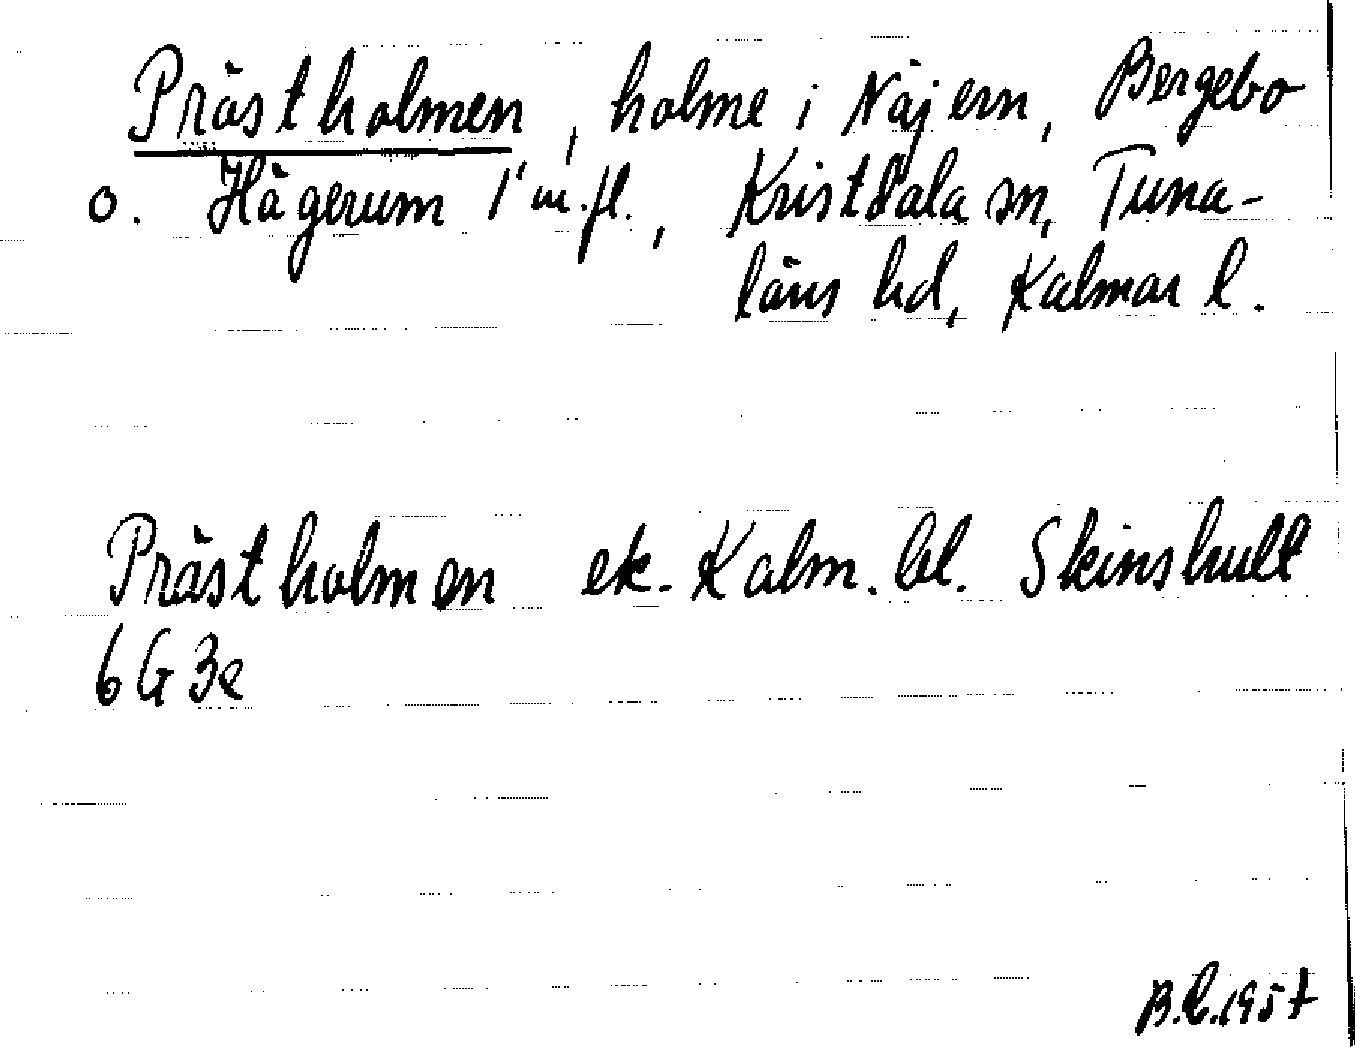 Prästholmen, holme i Näjern, Bergebo
o. Hägerum 1 m.fl., Kristdala sn, Tuna-
läns hd, Kalmar l.
Prästholmen ek. Kalm. bl. Skinshult
6G3e
B.L. 1957